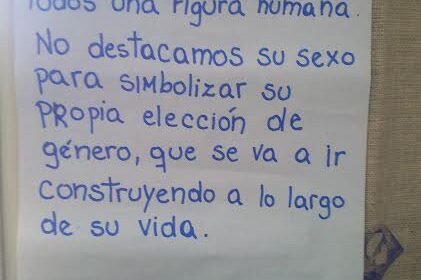 Todos una figura humana.
No destacamos su sexo
para SIMbolizar su
PROpia elección de
género, que se va a ir
construyendo a lo largo
de su vida.